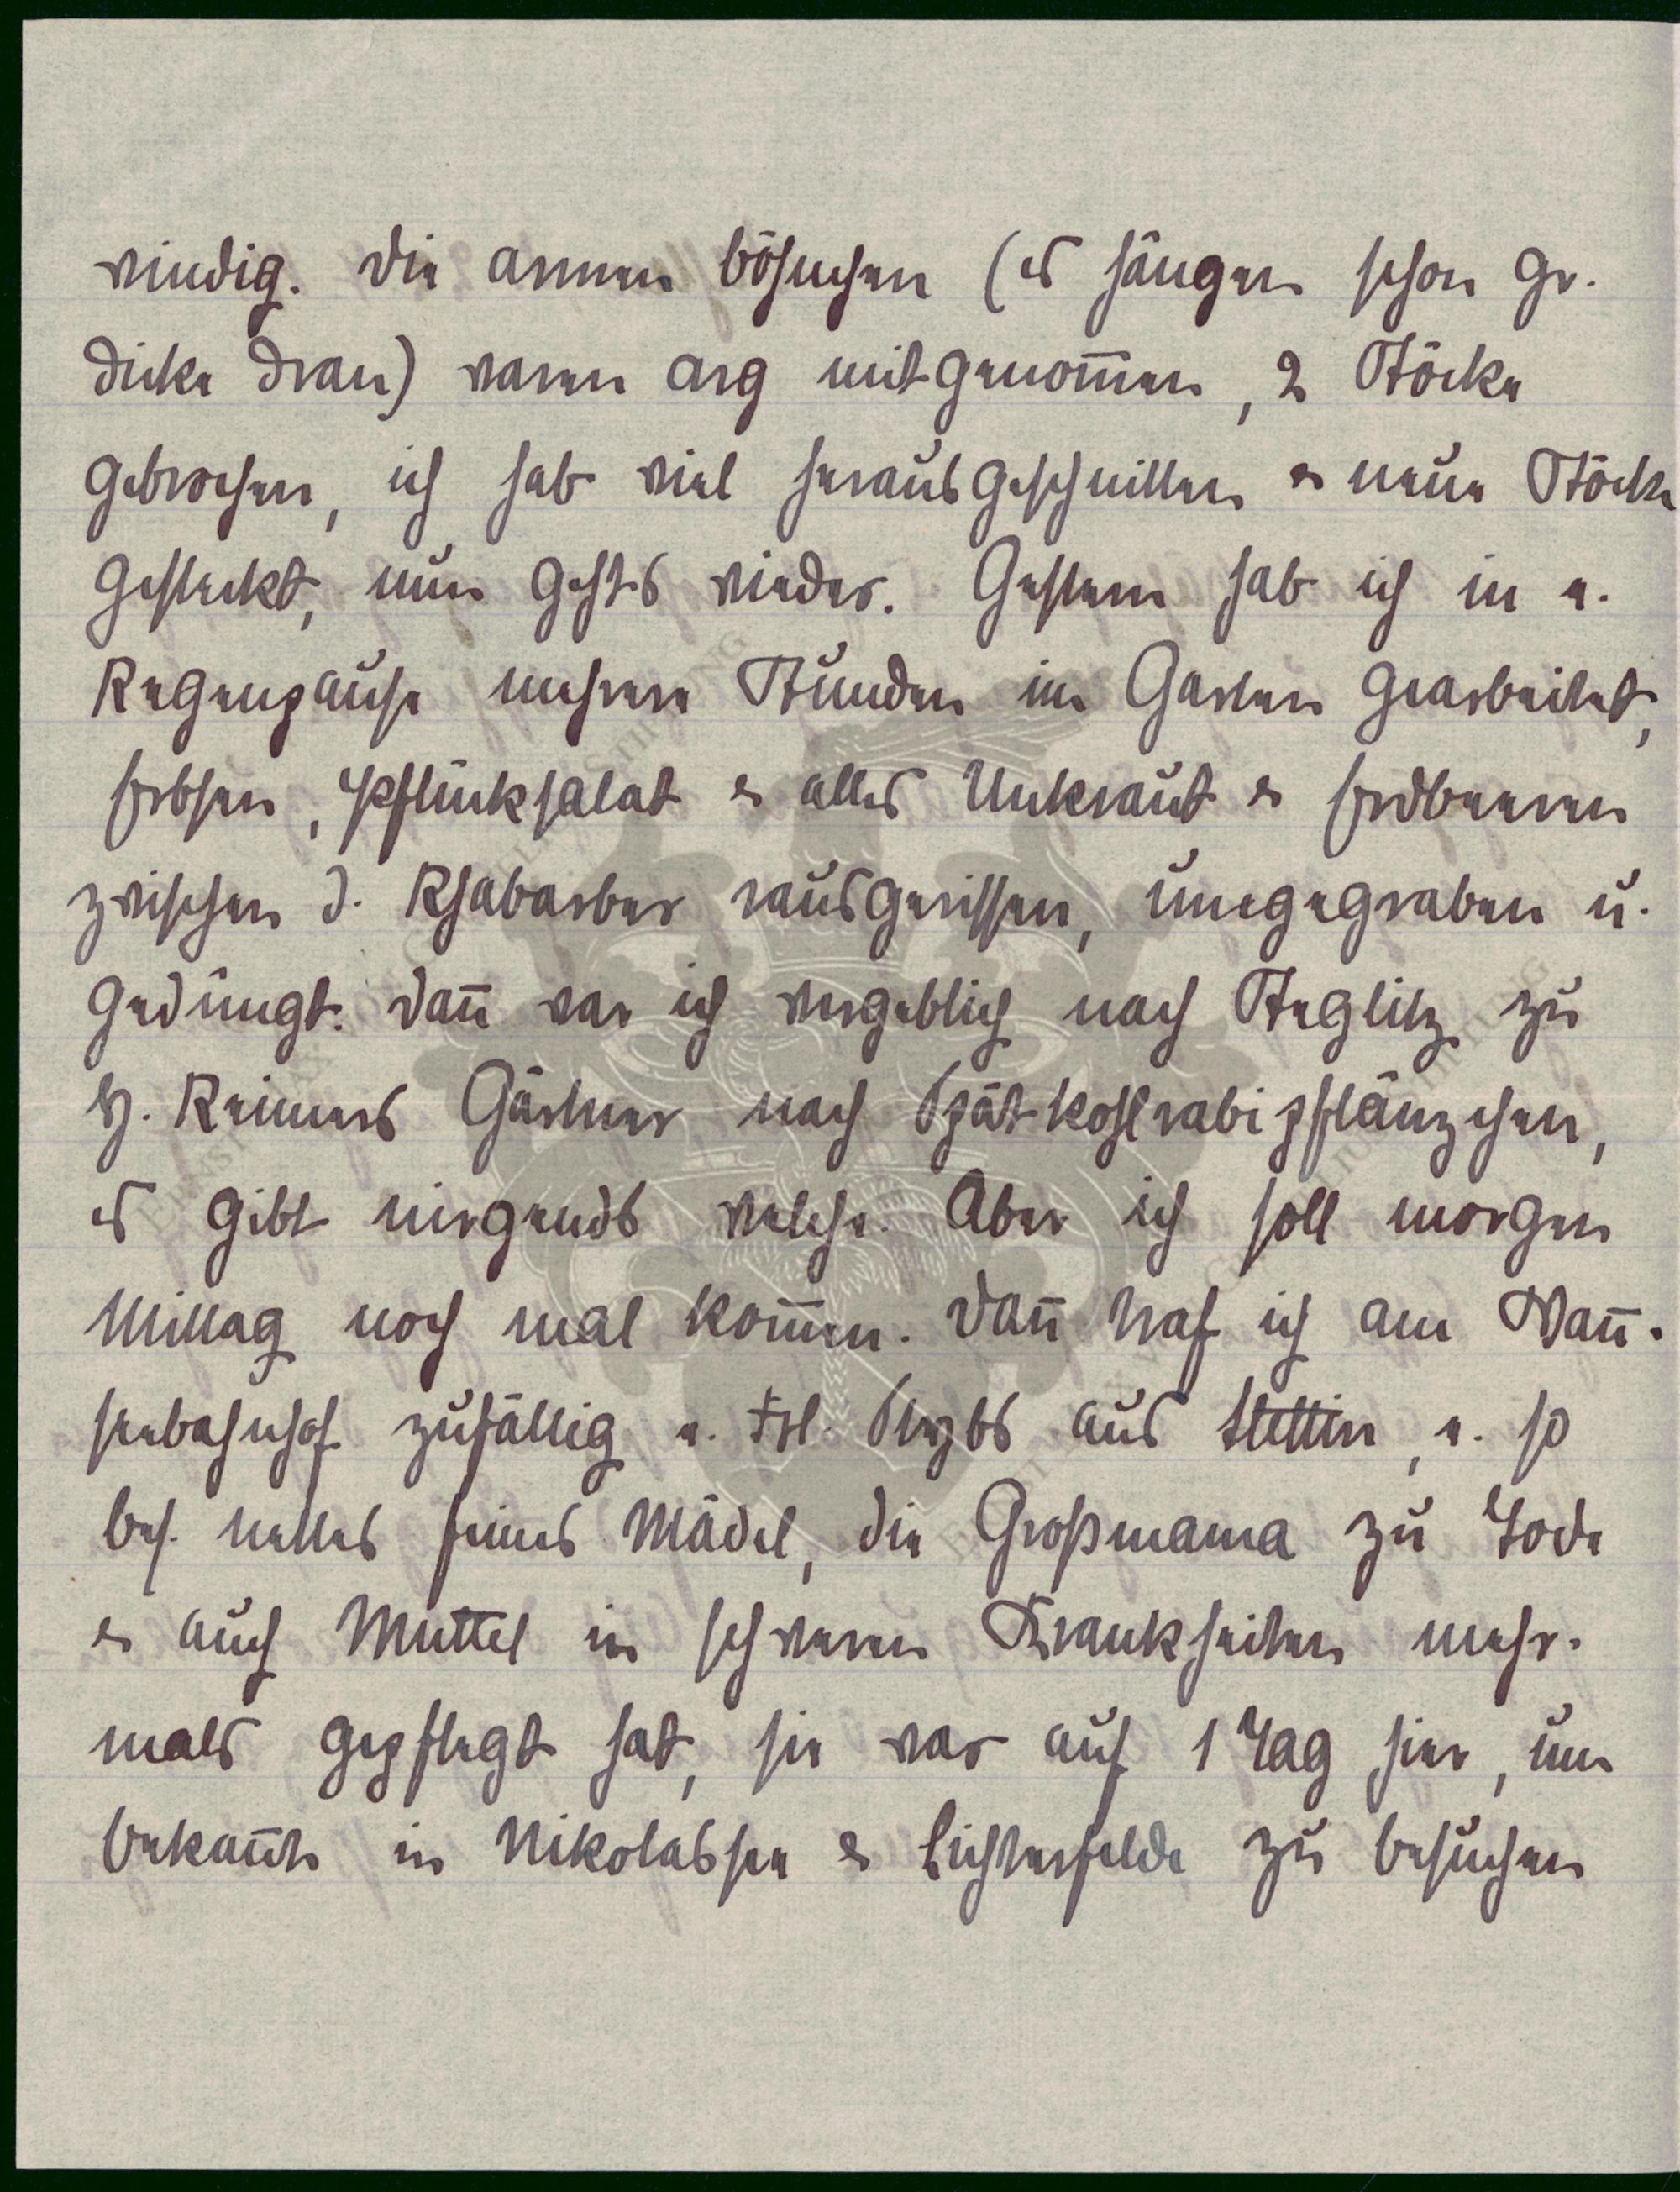 windig. Die armen Böhnchen (es hängen schon gr.
dicke dran) waren arg mitgenom̄en, 2 Stöcke
gebrochen, ich hab viel herausgeschnitten & neue Stöcke
gesteckt, nun gehts wieder. Gestern hab ich in e.
Regenpause mehrere Stunden im Garten gearbeitet,
Erbsen, Pflücksalat & alles Unkraut & Erdbeeren
zwischen d. Rhabarber rausgerissen, umgegraben u.
gedüngt. Dan̄ war ich vergeblich nach Steglitz zu
H. Reimers Gärtner nach Spätkohlrabipflänzchen,
es gibt nirgends welche. Aber ich soll morgen
Mittag noch mal kom̄en. Dan̄ traf ich am Wan̄-
seebahnhof zufällig e. Frl. aus Stettin, e. so
bes. nettes feines Mädel, die Großmama zu Tode
& auch Muttel in schweren Krankheiten mehr-
mals gepflegt hat, sie war auf 1 Tag hier, um
Bekan̄te in Nikolassee & Lichterfelde zu besuchen